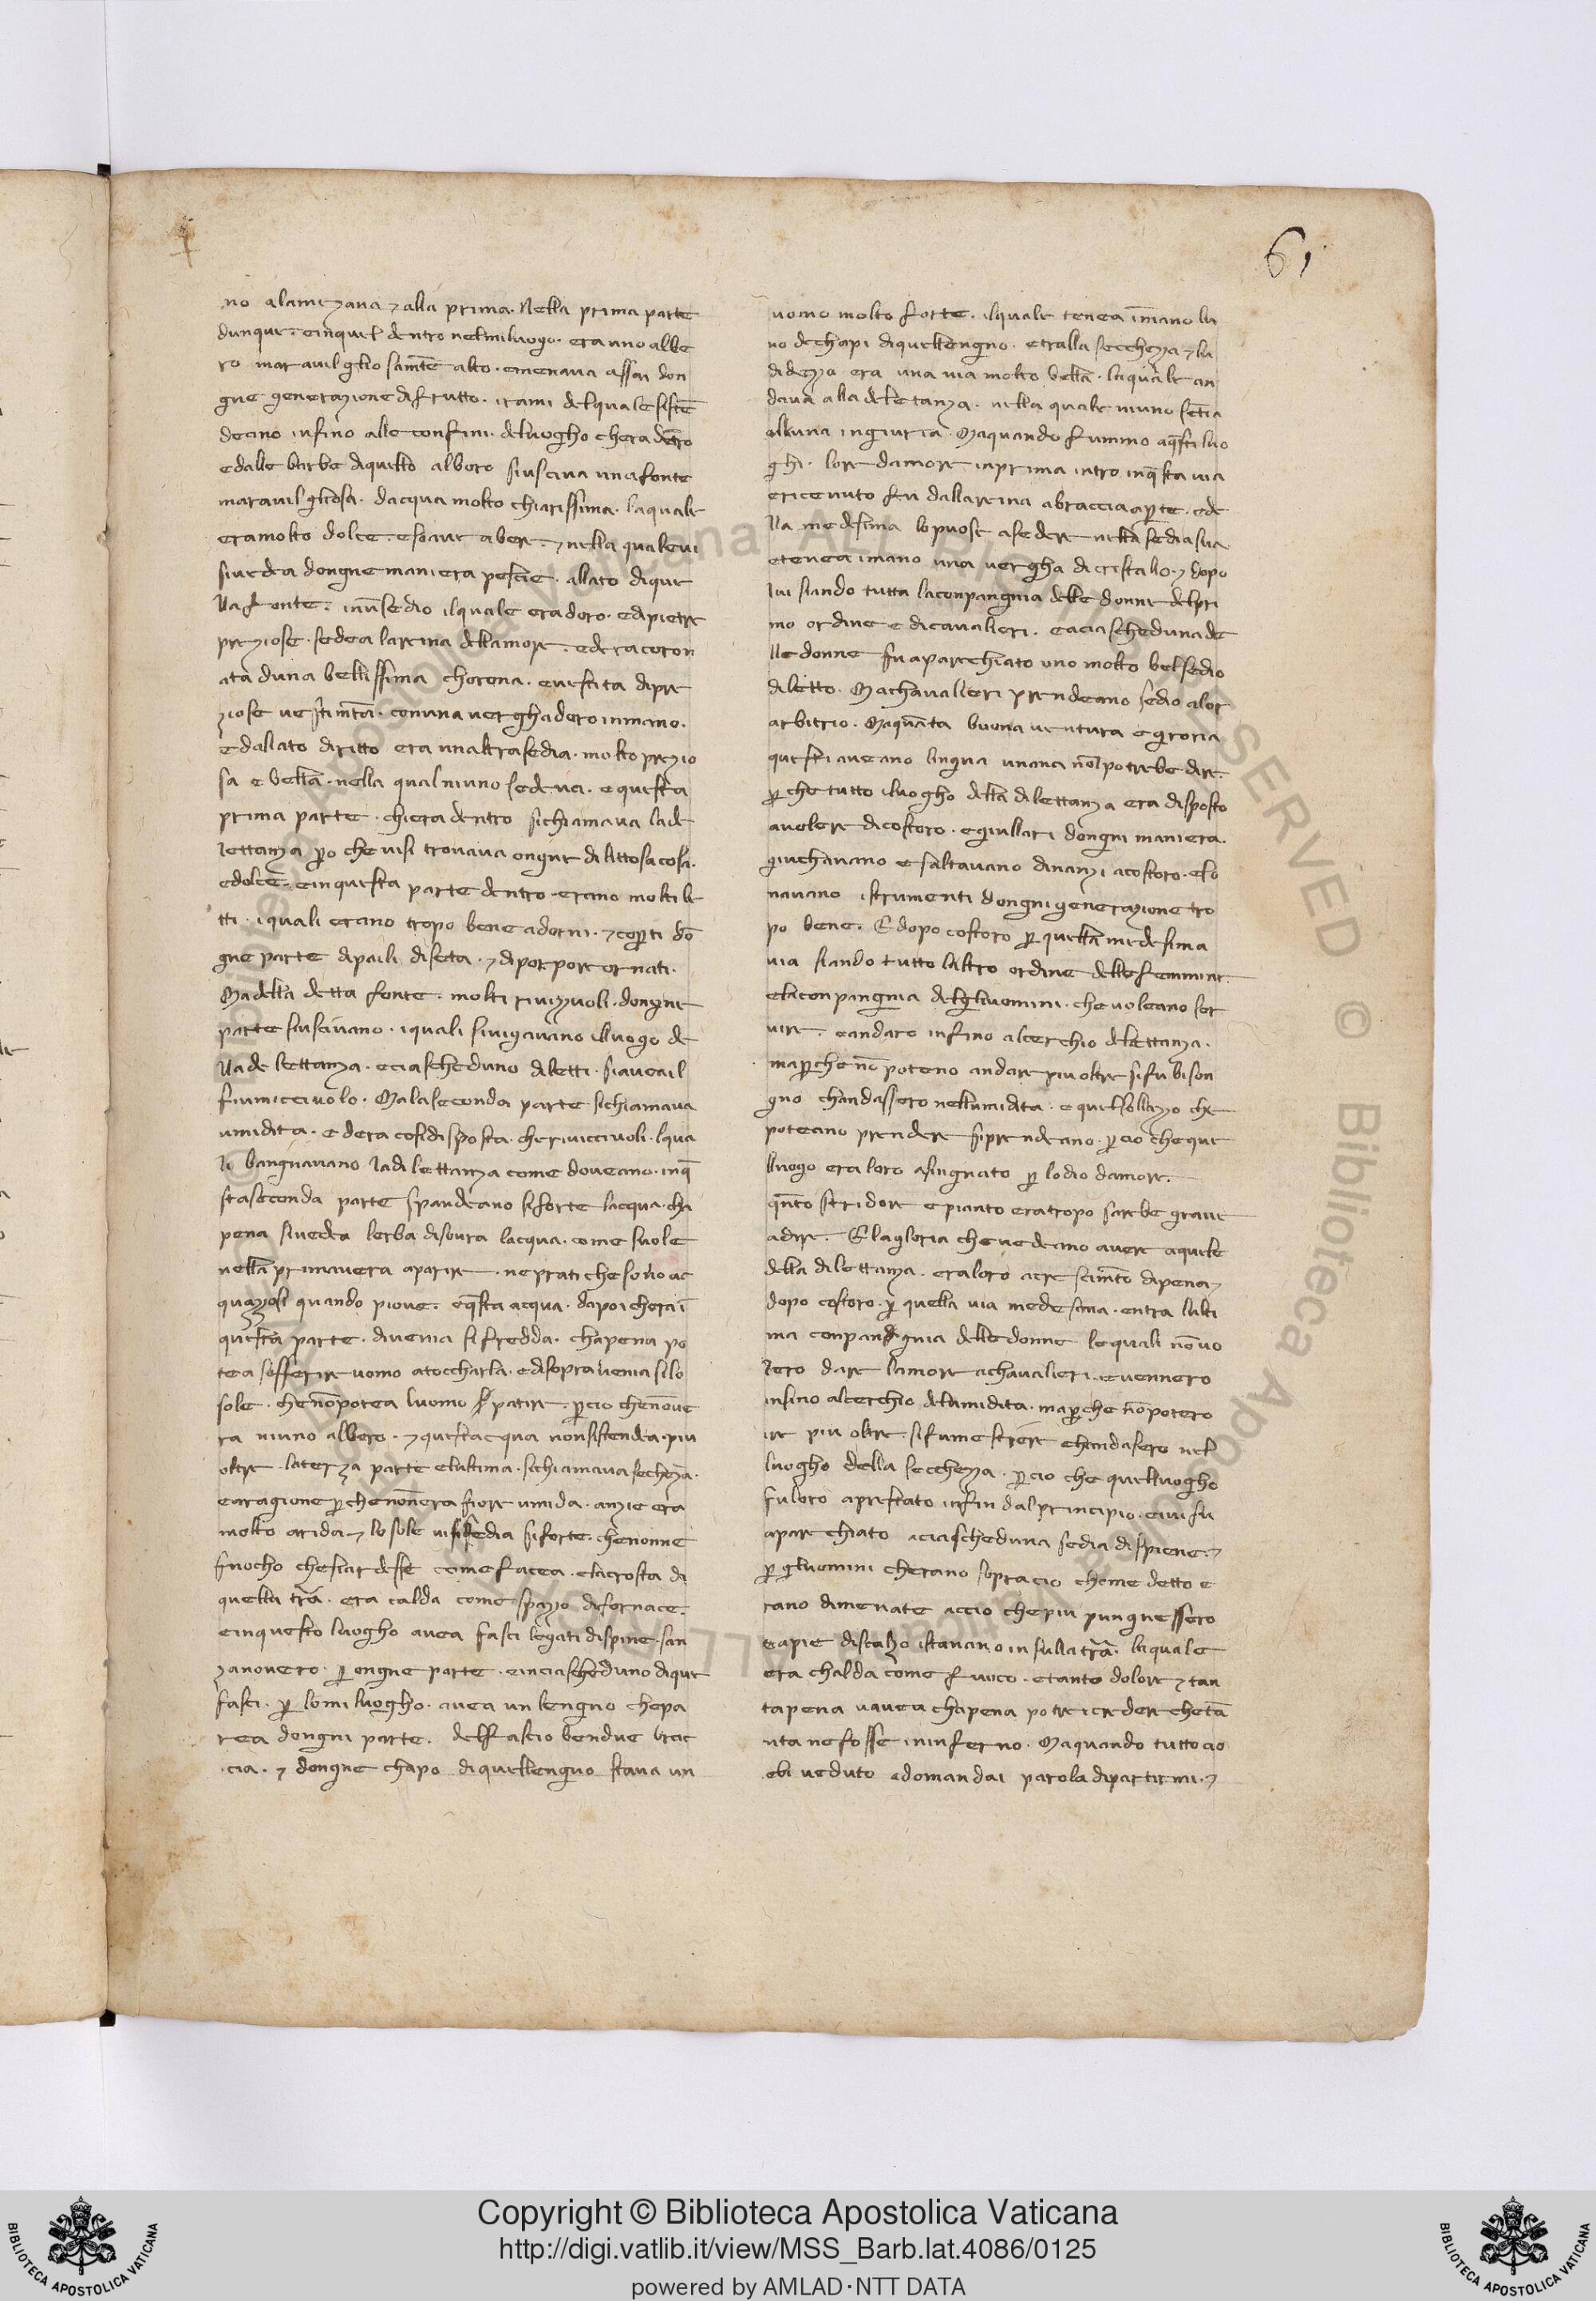 61
no alamezana ⁊ alla prima. Nella prima parte
dunque. einquel dentro nelmiluogo. era uno albe
ro maravilglio samēte alto. emenava assai don
gne generazione difrutto. irami delquale sistē
deano infino alle confini. deluogho chera dētro
edalle barbe diquello albero siusciva una fonte
maravilgliosa. dacqua molto chiarissima. laquale
eramolto dolce. esoave abere. ⁊ nella quale vi
sivedea dongnemaniera pescie. allato dique
lla fonte. inūsedio ilquale eradoro. edipietre
preziose. sedea lareina dellamore. ederacoron
ata duna bellissima chorona. evestita dipre
ziose vestimēta. conuna verghadoro inmano.
edallato diritto era unaltrasedia. molto prezio
sa e bella. nella qual niuno sedeva. e questa
prima parte. chiera dentro sichiamava lade
lettanza ꝑo che visi trovava ongne dilittosa cosa.
edolce. einquesta parte dentro erano molti le
tti. iquali erano tropo bene adorni. ⁊ coꝑti dō
gne parte dipaili diseta. ⁊ diporpore ornati.
Madella detta fonte. molti rivizzuoli. dongne
parte siuscivano. iquali sivigavano illuogo de
lla de lettanza. eciascheduno diletti. siaveail
fiumiccivolo. Malaseconda parte sichiamava
umidita. ed era cosidisposta. cherivicciuoli. lqua
li bangnavano ladilettanza come doveano. inq̄
staseconda parte spandeano siforte lacqua. cha
pena sivedea lerba disovra lacqua. come suole
nella primavera aparire. neprati che sono ac
quazosi quando piove. eq̄sta acqua. dapoi cherai
questa parte. divenia si fredda. chapena po
tea sofferire uomo atoccharla. edisopra venia silo
sole. chenōpotea luomo patire. ꝑcio chenōve
ra niuno albero. ⁊ questacqua nonsistendea. piu
oltre. laterza parte elultima. sichiamava secheza.
earagione ꝑchenonera fiore umida. anzie era
molto arida. ⁊ lo sole visi fedia siforte. chenonne
fuocho chesiardesse come facea. elacrosta di
quella tr̄a. era calda come spazo difornace.
einquesto luogho avea fasci legati dispine. san
za novero. ꝑ ongne parte. einciascheduno dique
fasci. ꝑ lomiluogho. avea un lengno chepa
rea dongni parte. delfascio bendue brac
cia. ⁊ dongne chapo diquellengno stava un
uomo molto forte. ilquale tenea īmano lu
no dechapi diquellengno. etralla seccheza ⁊ lu
midezza era una via molto bella. laquale an
dava alla deletanza. nella quale niuno sētia
alluna ingiuria. Maquando fummo aq̄sti luo
ghi. lore damore inprima intro inq̄sta via
ericevuto fu dallareina abraccia aꝑte. ede
lla medesima lopuose asedere nella sediasua
etenea imano una vergha dicristallo. ⁊ dopo
lui siando tutta laconpangnia delle donne delpri
mo ordine e dicavalieri. eaciascheduna de
lle donne fu aparechiato uno molto bel sedio
diletto. Machavalieri prendeano sedio alor
arbitrio. Maquāta buona ventura egroria
questi aveano lingua umana nōlpotrebe dire.
ꝑche tutto iluogho della dilettanza era disposto
avolere dicostoro. egiullari dongni maniera.
giuchavano esaltavano dinanzi acostoro. eso
navano istrumenti dongni generazione tro
po bene. E dopo costoro ꝑ quella medesima
via siando tutto laltro ordine delle femmine.
elaconpangnia delglivomini. chevoleano ser
vire. eandaro infino alcerchio delettanza.
maꝑche nō poteno andare piu oltre sifu bison
gno chandassero nellumidita. e quel sollazo che
poteano prendere siprendeano. ꝑcio cheque
lluogo era loro asiugnato ꝑ lodio damore.
q̄nto stridore epianto eratropo sarebe grave
adire. E lagloria chevedeano avere aquelle
della dilettanza. eraloro acrescimēto dipena. ⁊
dopo costoro. ꝑ quella via medesima. entra lulti
ma conpangnia delledonne lequali nō vo
lero dare lamore achavalieri. evennero
insino alcerchio delumidita. maꝑche nōpotero
ire piu oltre. sifumestiere chandasero nel
luogho della seccheza. ꝑcio che quelluogho
fuloro aprestato infin dalprincipio. eivi fu
aparechiato aciascheduna sedia dispine. ⁊
ꝑ glivomini cherano sopra cio chome detto e
rano dimenate accio chepiu pungnessero
eapie discalzo istavano insullatr̄a. laquale
era chalda come fuoco. etanto dolore ⁊ tan
tapena vavea chapena potrei credere chetā
nta nefosse ininferno. Maquando tutto cio
ebi veduto edomandai parola dipartirmi. ⁊
Copyright © Biblioteca Apostolica Vaticana
http://digi.vatlib.it/view/MSS_Barb.lat.4086/0125
powered by AMLAD·NTT DATA